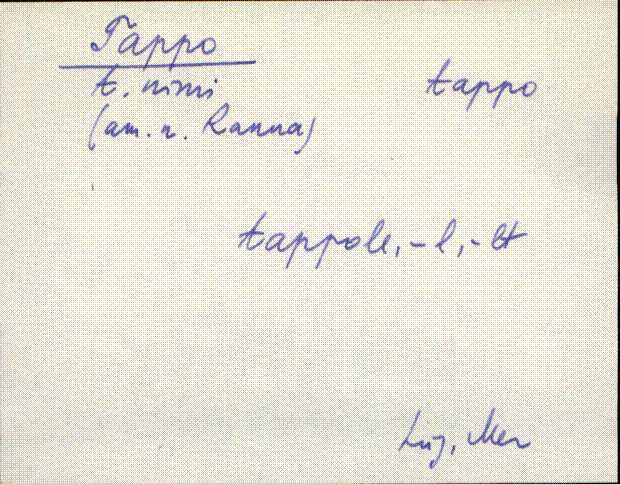 Tappo
t. nimi tappo
(am. n. Ranna)
tappole, -l, -lt
Lüg, Mer